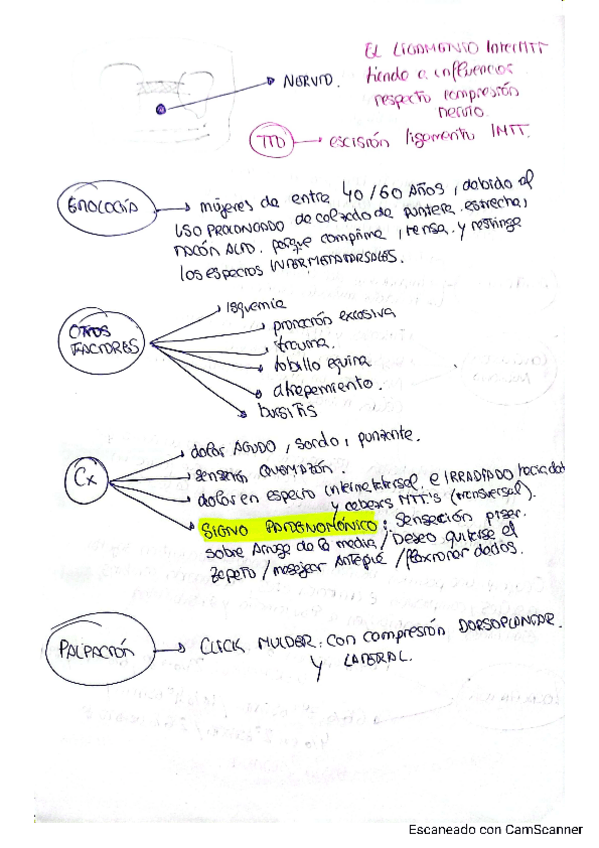 EL LIGAMENTO InterMTT
tiende a influencias
respecto compresión
nervio.
NERVIO.
TTO → escisión ligamento IMTT.
ETIOLOGÍA → mujeres de entre 40/60 AÑOS, debido al
USO PROLONGADO de calzado de puntera estrecha,
TACÓN ALTO. porque comprime, tensa y restringe
los espacios INTERMETATARSALES.
OTROS
FACTORES
isquemia
pronación excesiva
trauma.
tobillo equino
atrapamiento.
bursitis
Cx
dolor AGUDO, sordo, punzante.
sensación QUEMAZÓN.
dolor en espacio intermetatarsal e IRRADIADO hacia dedos
y cabezas MTT's (transversal).
SIGNO PATOGNOMÓNICO: Sensación pisar
sobre Arruga de la media / Deseo quitarse el
zapato / masajear Antepié / flexionar dedos.
PALPACIÓN → CLICK MULDER: con compresión DORSOPLANTAR
y LATERAL.
Escaneado con CamScanner